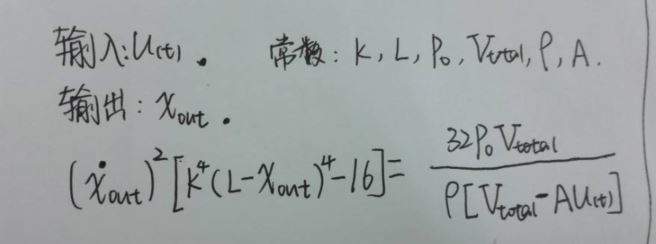 输入:U(t). 常数: K, L, P₀, Vtotal, ρ, A.
输出: Xout.
(Ẋout)²[K⁴(L-Xout)⁴-16]= 32P₀Vtotal / ρ[Vtotal-AU(t)]